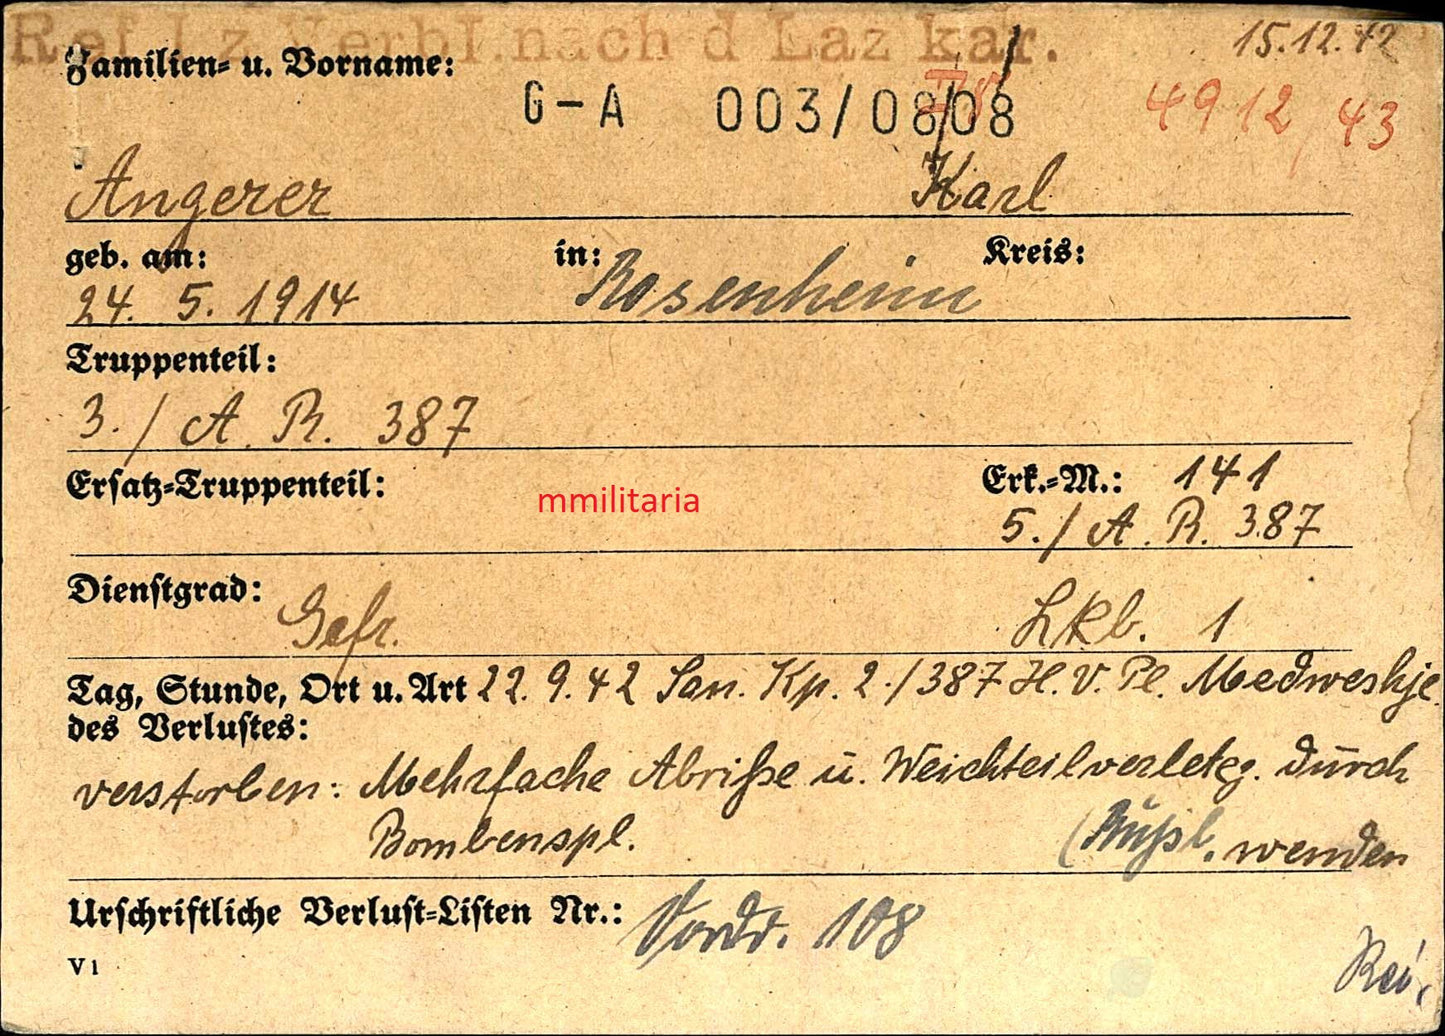 Ref I z Verbl.nach d Laz kar.
15.12.42
Familien- u. Vorname:
G-A 003/0808
4912/43
Angerer Karl
geb. am: in: Kreis:
24. 5. 1914 Rosenheim
Truppenteil:
3./ A. R. 387
Ersatz-Truppenteil: Erk.-M.: 141
mmilitaria
5./ A. R. 387
Dienstgrad: Gefr. Lkb. 1
Tag, Stunde, Ort u. Art 22. 9. 42 San. Kp. 2./387 H. V. Pl. Medweshje
des Verlustes:
verstorben: Mehrfache Abriße u. Weichteilverletzg. durch
Bombenspl. (Rußl. wenden
Urschriftliche Verlust-Listen Nr.: Vordr. 108
V 1